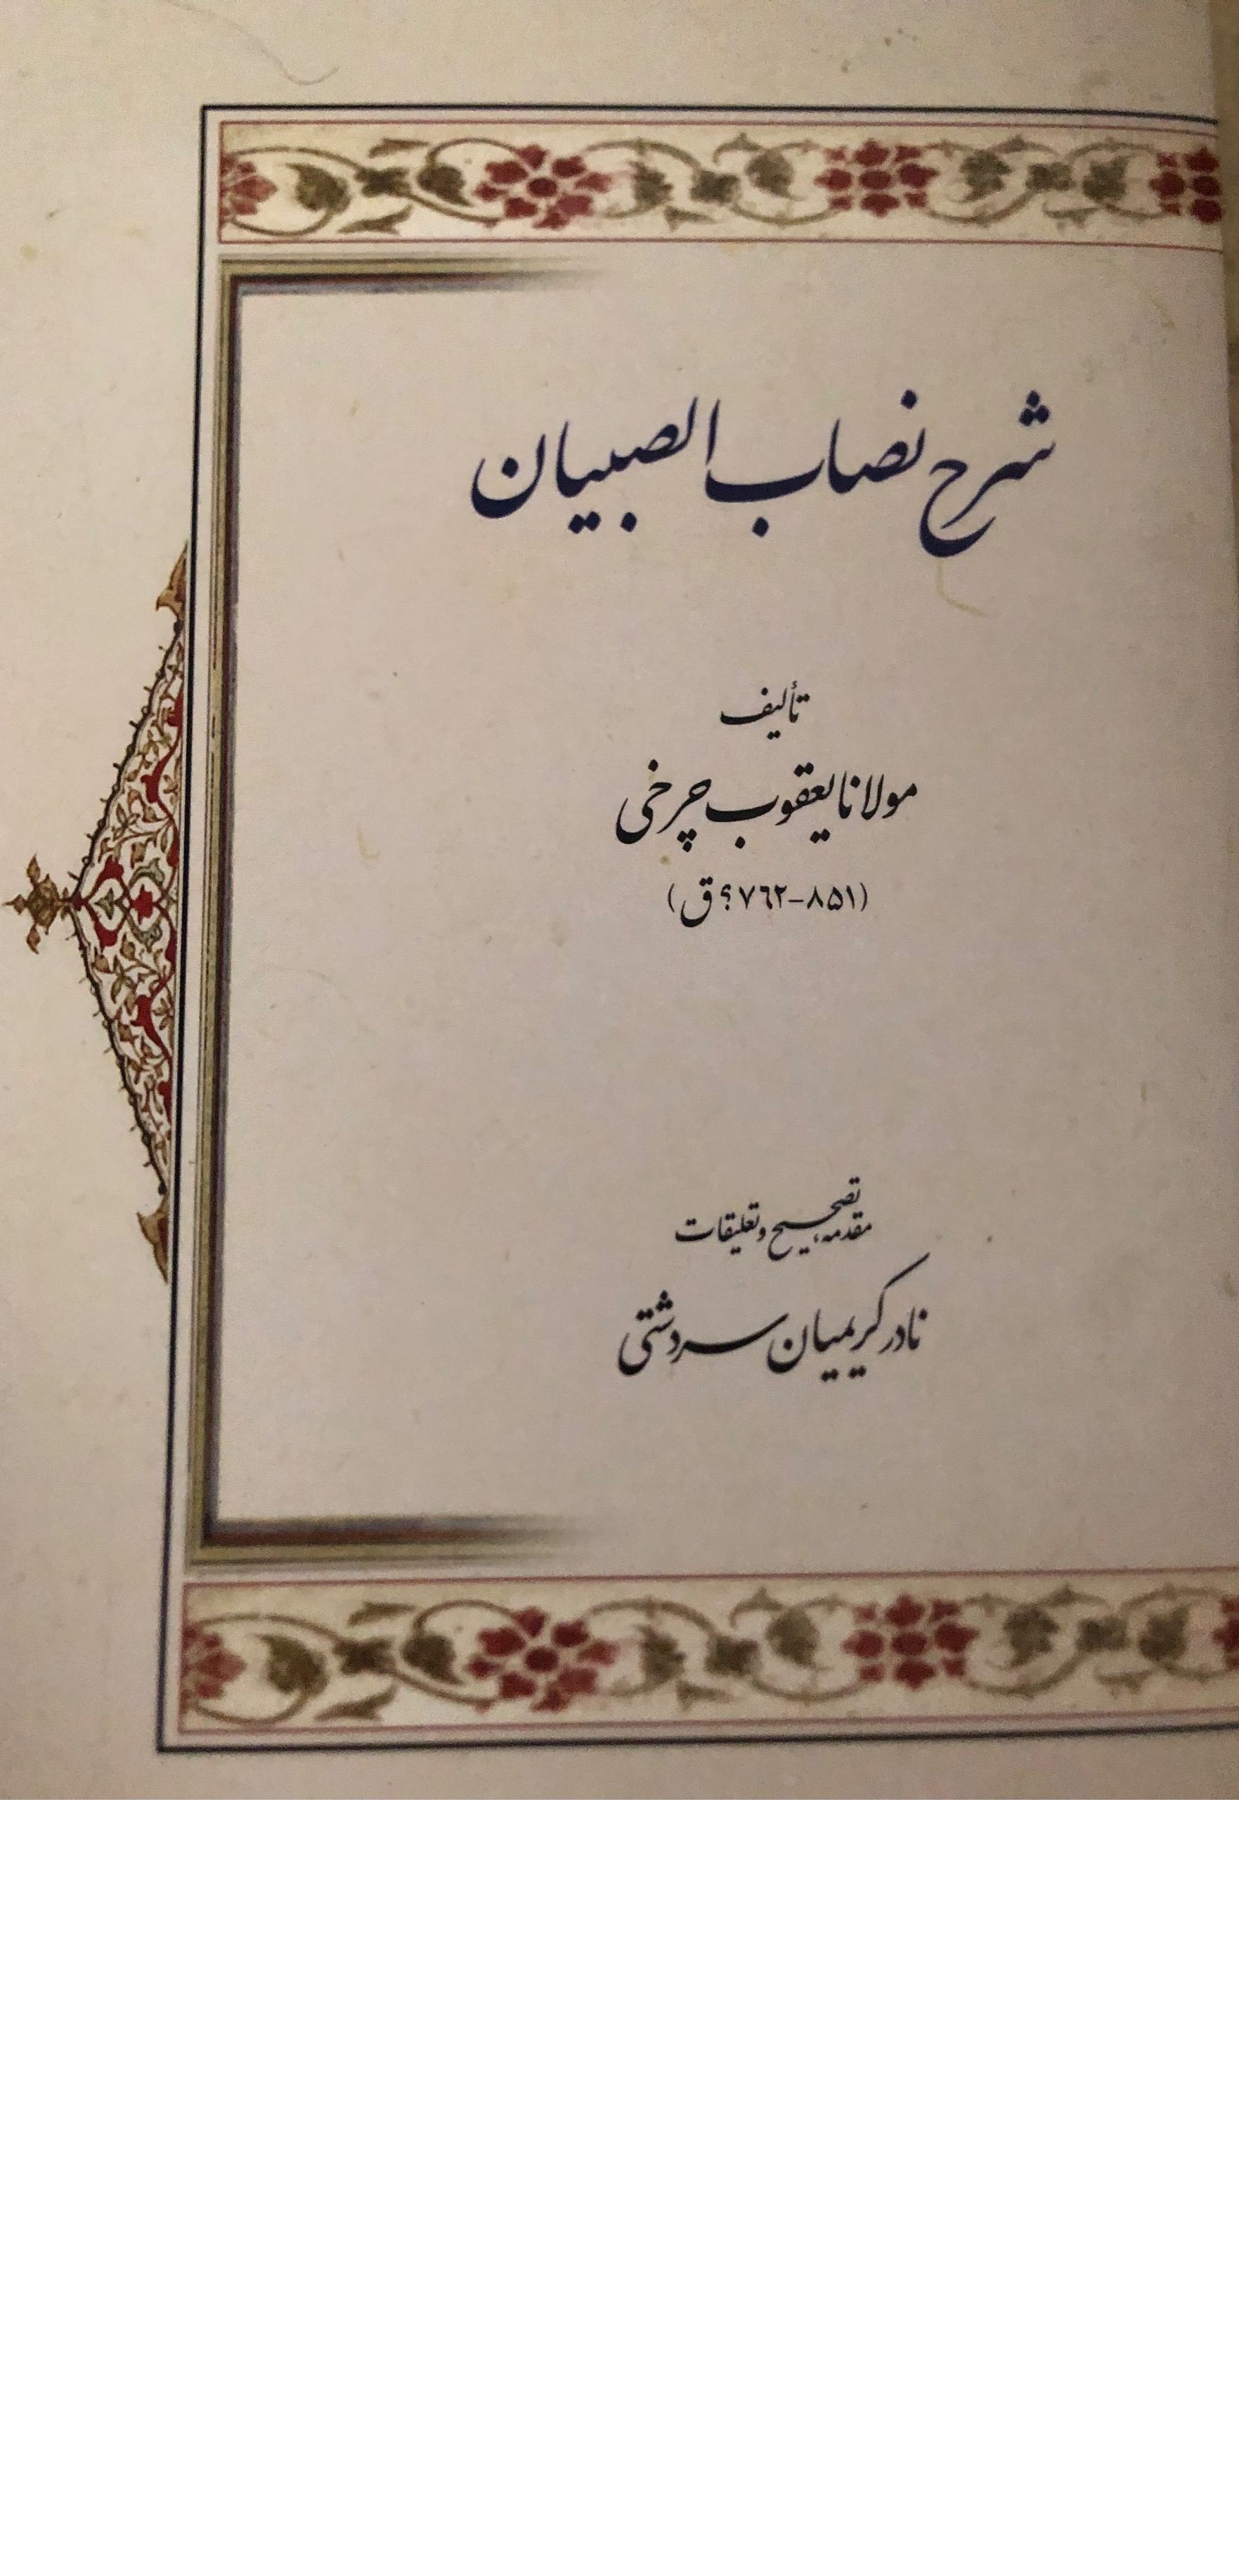 شرح نصاب الصبیان
تألیف
مولانا یعقوب چرخی
(۸۵۱-۷۶۲؟ ق)
مقدمه، تصحیح و تعلیقات
نادر کریمیان سردشتی